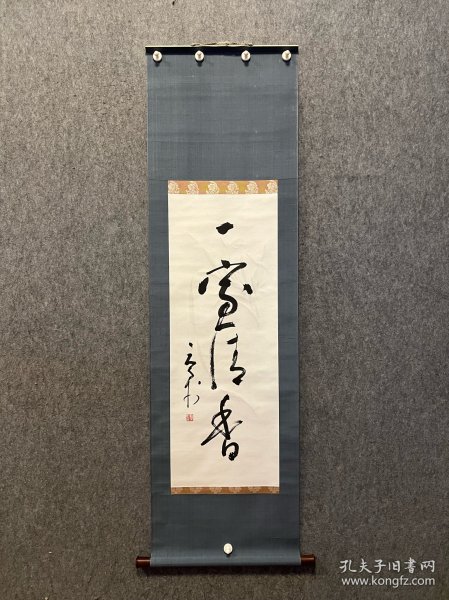 一室清香
孔夫子旧书网
www.kongfz.com